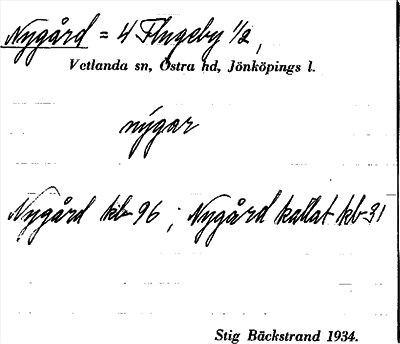 Nygård = 4 Flugeby 1/2,
Vetlanda sn, Östra hd, Jönköpings l.
nýgar
Nygård kb 96 ; Nygård kallat kb 31
Stig Bäckstrand 1934.